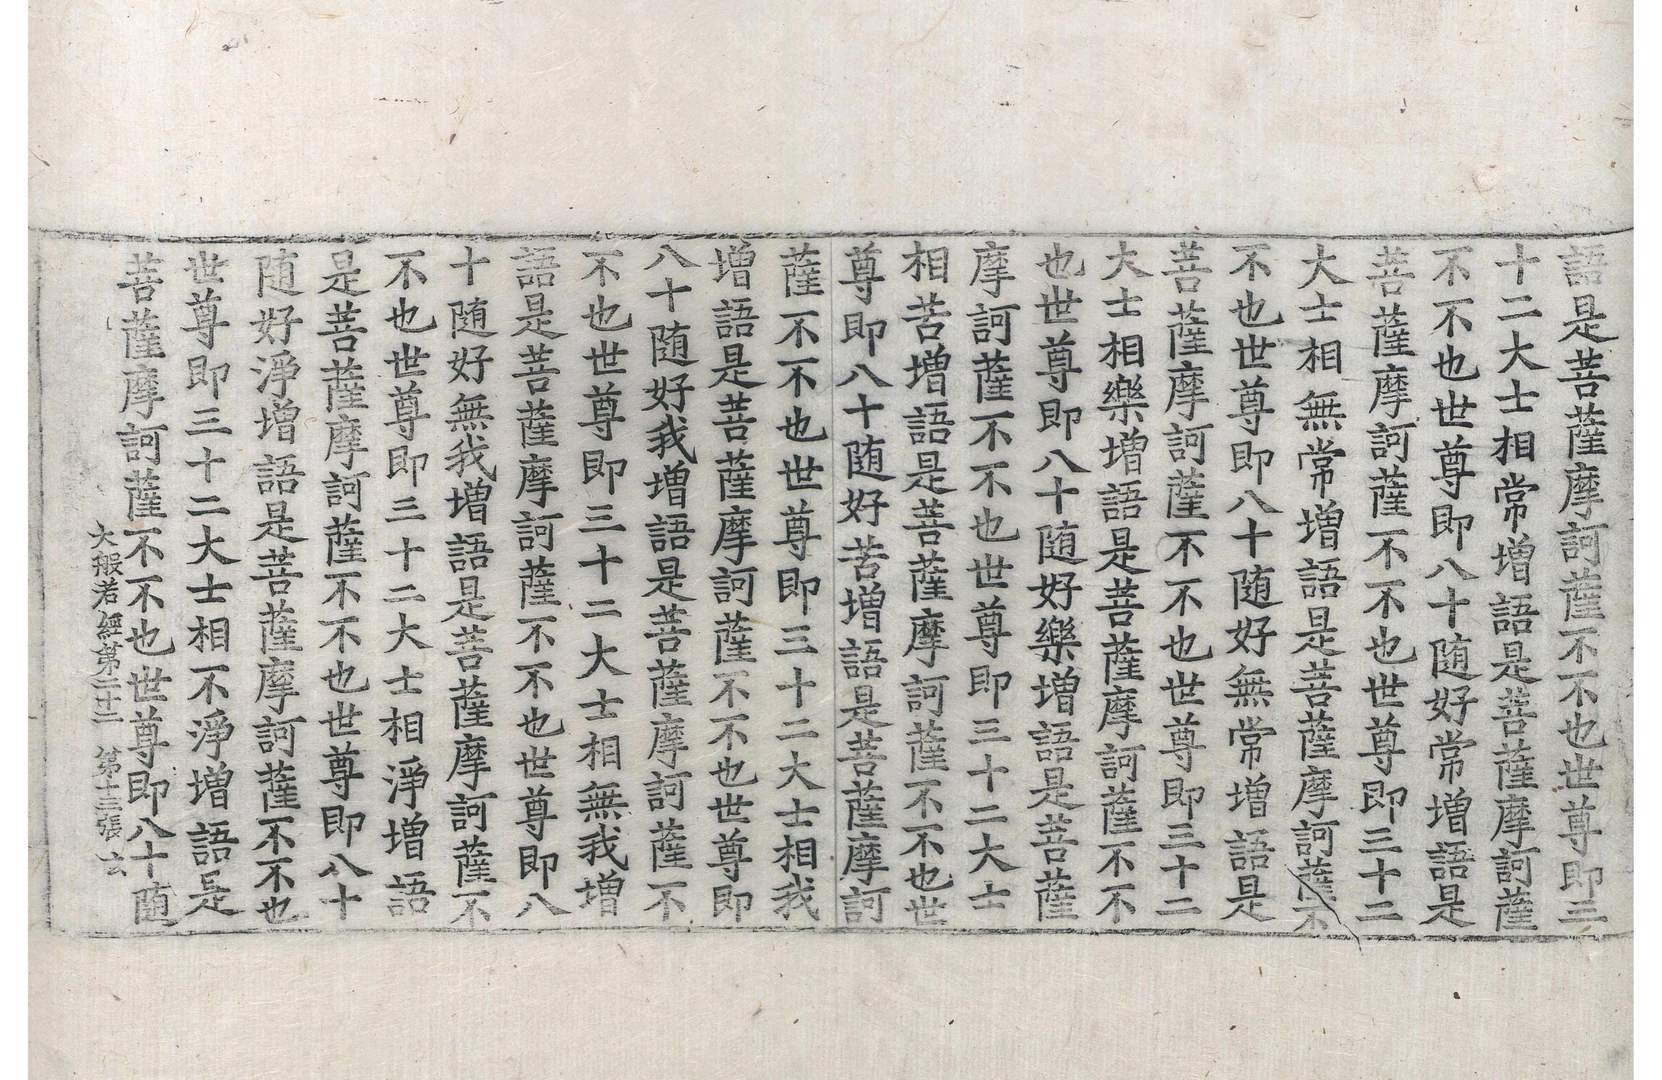 語是菩薩摩訶薩不不也世尊即三
十二大士相常增語是菩薩摩訶薩
不不也世尊即八十随好常增語是
菩薩摩訶薩不不也世尊即三十二
大士相無常增語是菩薩摩訶薩不
不也世尊即八十随好無常增語是
菩薩摩訶薩不不也世尊即三十二
大士相樂增語是菩薩摩訶薩不不
也世尊即八十随好樂增語是菩薩
摩訶薩不不也世尊即三十二大士
相苦增語是菩薩摩訶薩不不也世
尊即八十随好苦增語是菩薩摩訶
薩不不也世尊即三十二大士相我
增語是菩薩摩訶薩不不也世尊即
八十随好我增語是菩薩摩訶薩不
不也世尊即三十二大士相無我增
語是菩薩摩訶薩不不也世尊即八
十随好無我增語是菩薩摩訶薩不
不也世尊即三十二大士相淨增語
是菩薩摩訶薩不不也世尊即八十
随好淨增語是菩薩摩訶薩不不也
世尊即三十二大士相不淨增語是
菩薩摩訶薩不不也世尊即八十随
大般若經第二十二 第十三張 玄